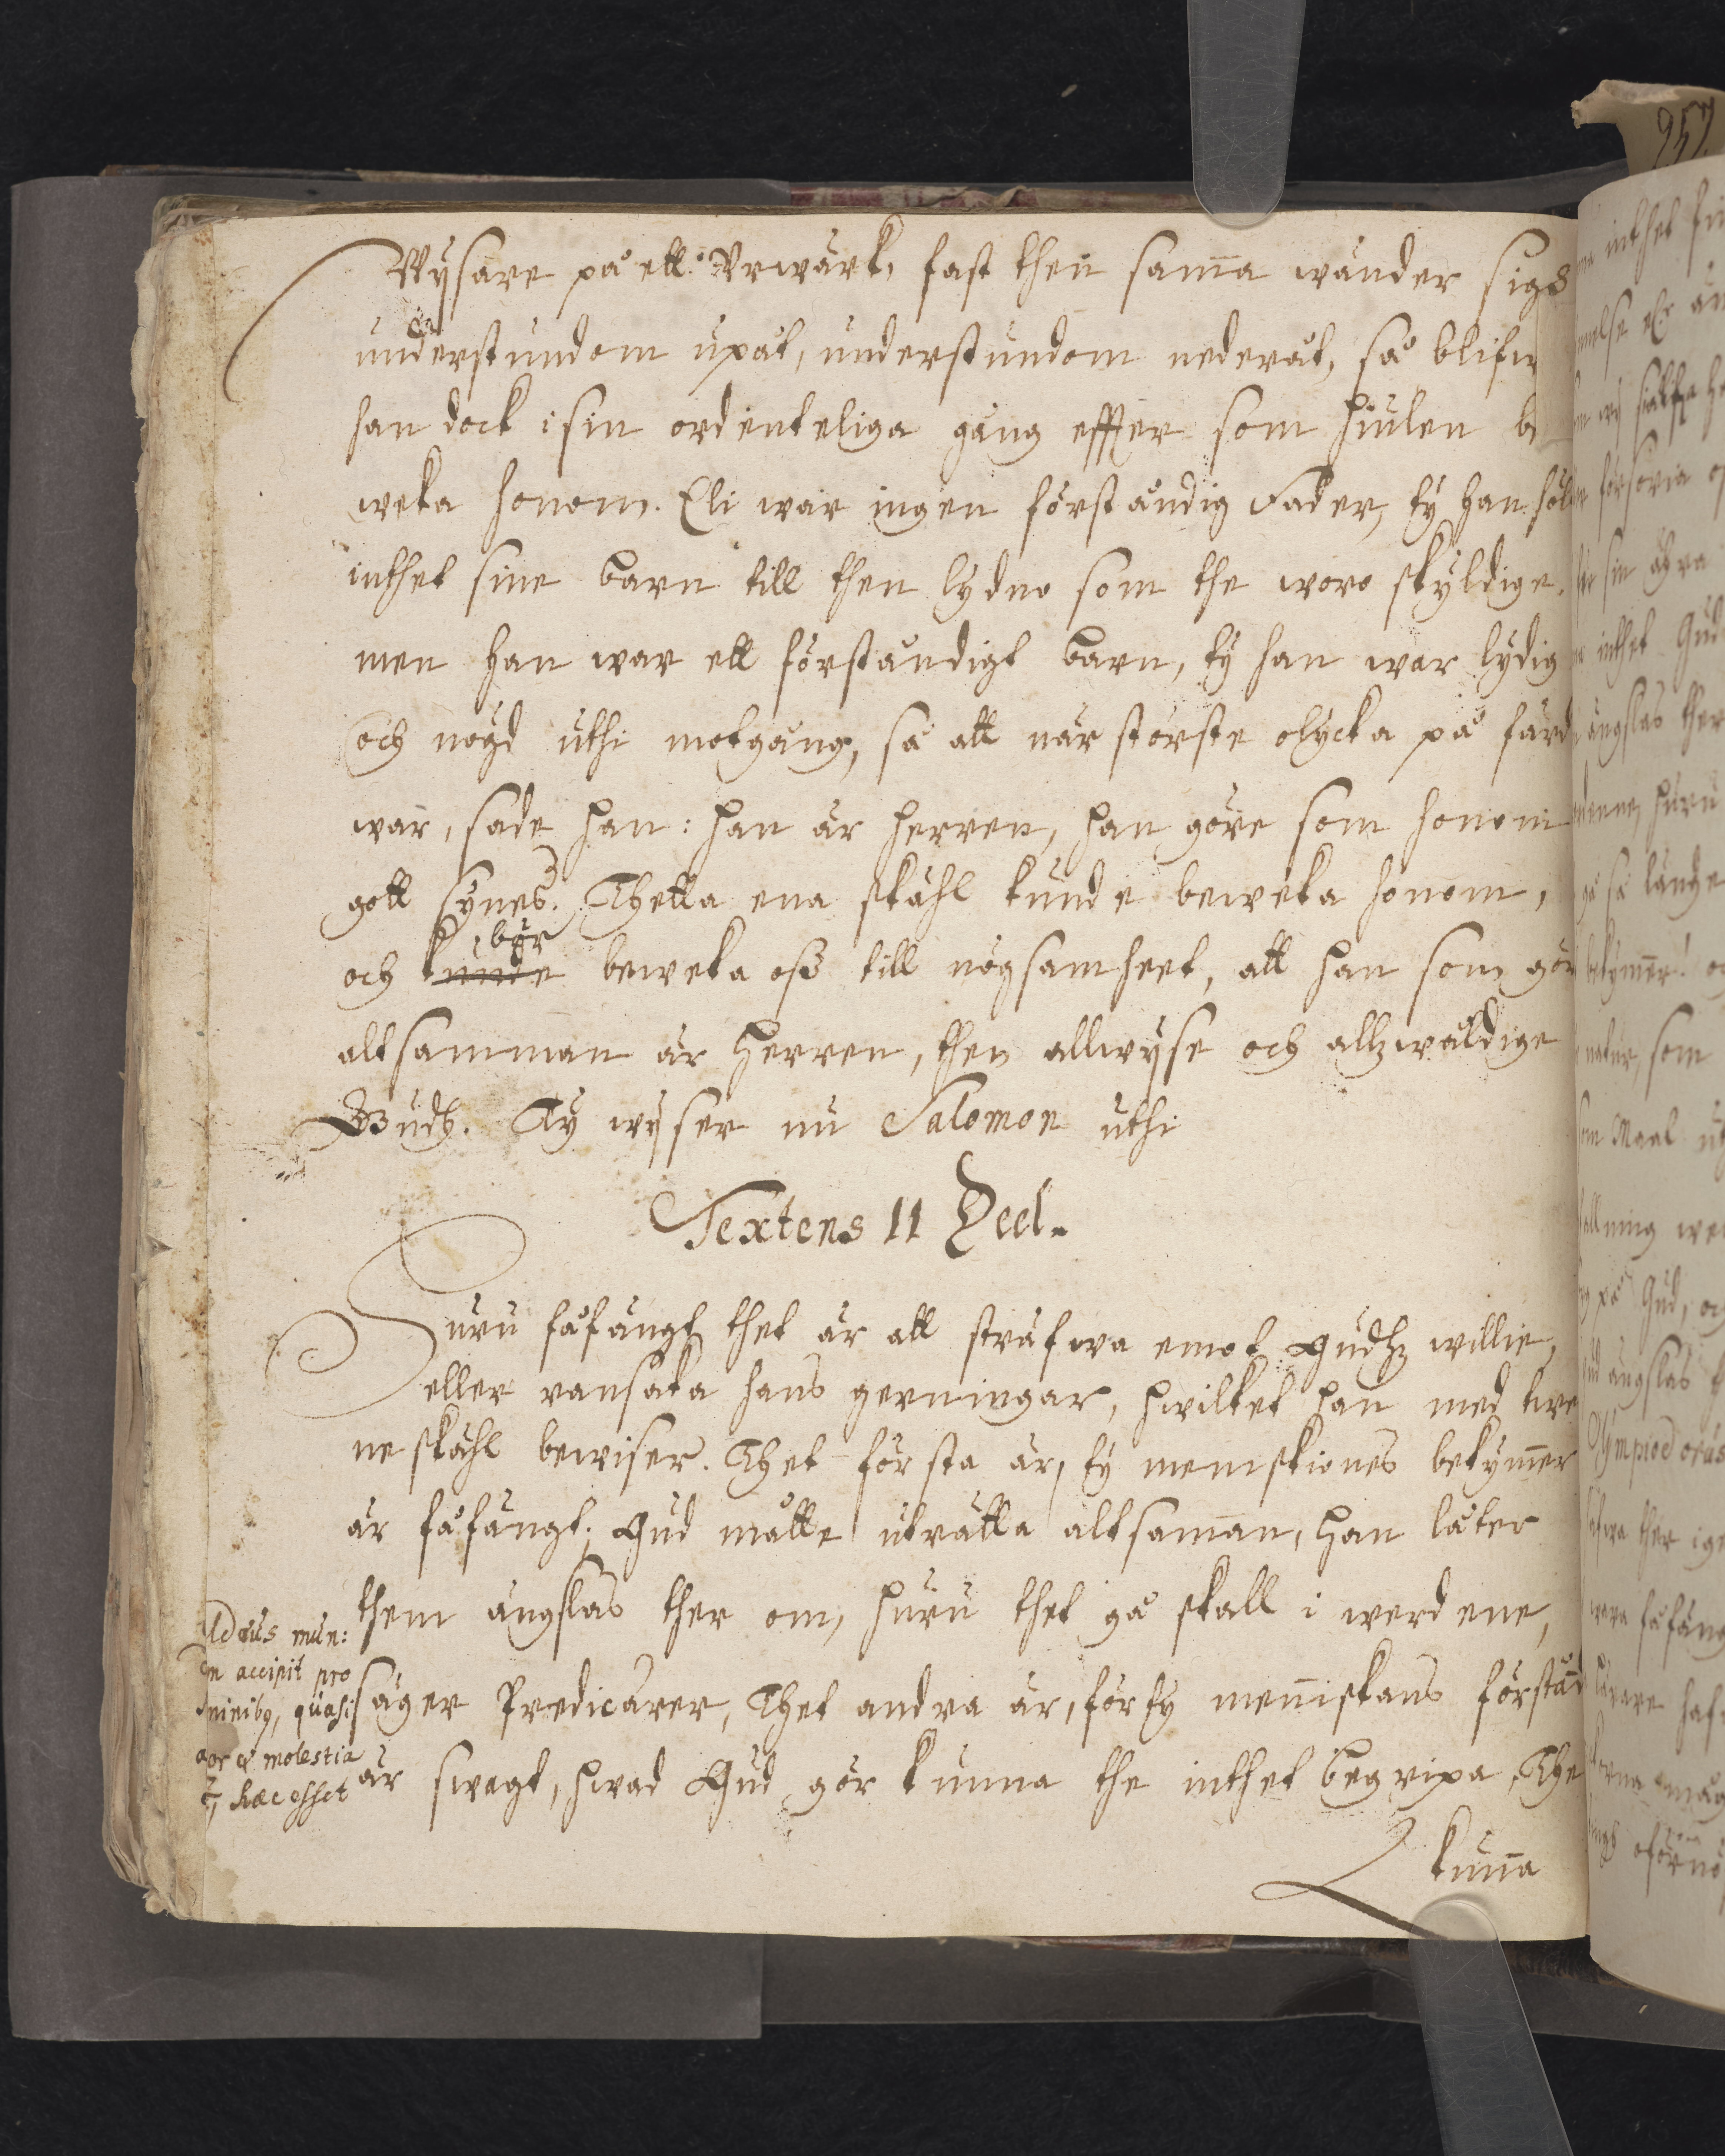 Wÿsare på ett Urwärk, fast then sam̄a wänder sig
understundom upåt, understundom nederåt, så blifw
han dock i sin ordenteliga gång effter som hiulen be
weka honom. Eli war ingen förståndig Fader, ty han höl
inthet sine barn till then lydno som the woro skyldige,
men han war ett förståndigt barn, ty han war lydig
och nögd uthi motgång, så att när störste olycka på färde
war, sade han: han är herren, han göre som honom
gott synes. Thetta ena skähl kunde beweka honom,
bör
och kunde beweka oss till nögsamheet, att han som gör
altsamman är Herren, then allwÿse och allzwåldige
Gudh. Ty wÿser nu Salomon uthi
Textens II Deel.
Huru fåfängt thet är att sträfwa emot Gudhz willie,
eller ransaka hans gerningar, hwilket han med twe
ne skähl bewiser. Thet första är, ty menniskiones bekym̄er
är fåfängt, Gud måtte uträtta altsam̄an, han låter
them ängslas ther om, huru thet gå skall i werldene,
säger Predicaren, Thet andra är, för ty men̄iskans förstånd
är swagt, hwad Gud gör kunna the inthet begripa, The
mun:
accipit pro
quasi
& molestia
hæc esset
kun̄a